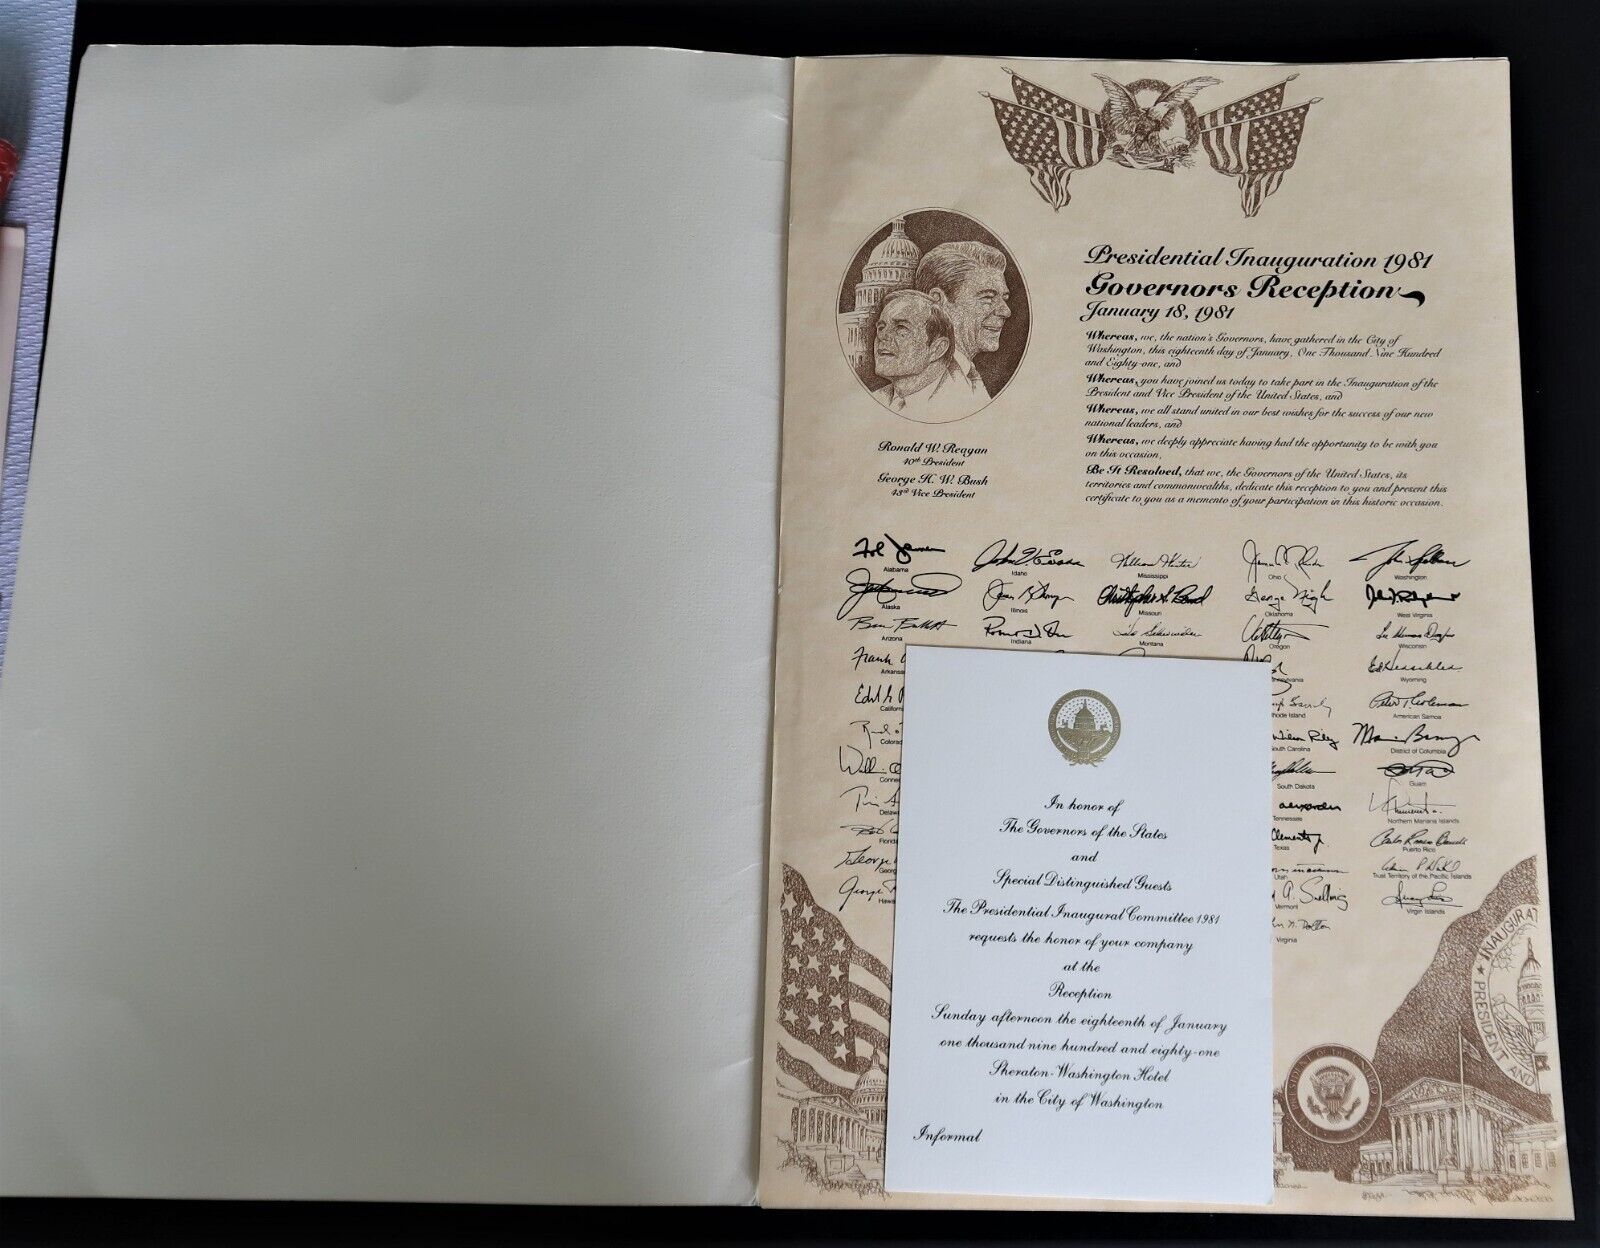 Presidential Inauguration 1981
Governors Reception
January 18, 1981
Whereas, we, the nation's Governors, have gathered in the City of
Washington, this eighteenth day of January, One Thousand Nine Hundred
and Eighty-one, and
Whereas, you have joined us today to take part in the Inauguration of the
President and Vice President of the United States, and
Whereas, we all stand united in our best wishes for the success of our new
national leaders, and
Whereas, we deeply appreciate having had the opportunity to be with you
on this occasion,
Be It Resolved, that we, the Governors of the United States, its
territories and commonwealths, dedicate this reception to you and present this
certificate to you as a memento of your participation in this historic occasion.
Ronald W. Reagan
40th President
George H. W. Bush
43rd Vice President
Alabama
Alaska
Arizona
Frank
Arkansas
California
Colorado
George
John V. Evans
Idaho
Illinois
Indiana
William Winter
Mississippi
Christopher S. Bond
Missouri
Montana
James A. Rhodes
Ohio
George Nigh
Oklahoma
Oregon
South Carolina
South Dakota
Tennessee
Clements Jr.
Texas
Utah
Vermont
John N. Dalton
Virginia
Washington
West Virginia
Lee Sherman Dreyfus
Wisconsin
Ed Herschler
Wyoming
Peter T. Coleman
American Samoa
Marion Barry
District of Columbia
Guam
Northern Mariana Islands
Carlos Romero Barceló
Puerto Rico
Trust Territory of the Pacific Islands
Virgin Islands
In honor of
The Governors of the States
and
Special Distinguished Guests
The Presidential Inaugural Committee 1981
requests the honor of your company
at the
Reception
Sunday afternoon the eighteenth of January
one thousand nine hundred and eighty-one
Sheraton-Washington Hotel
in the City of Washington
Informal
★ INAUGURAT
PRESIDENT AND